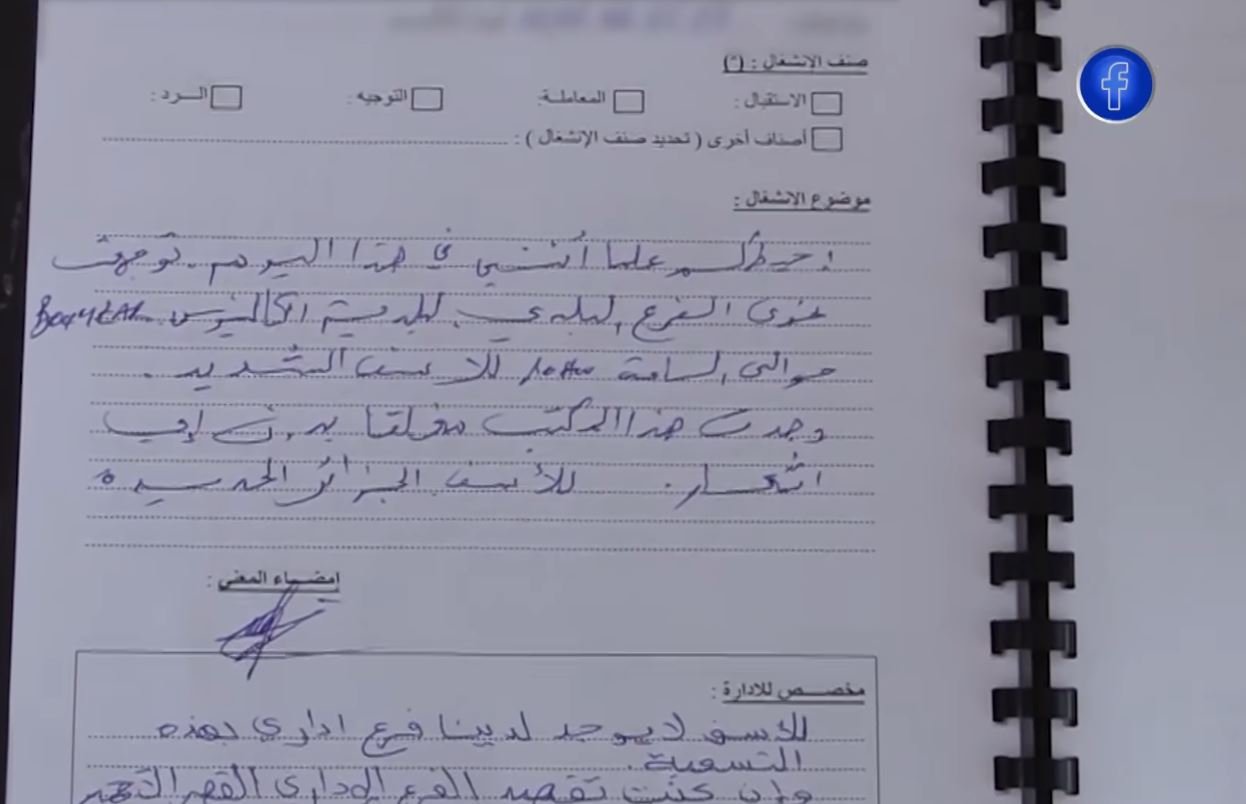 صنف الإنشغال : (*)
الاستقبال : المعاملة: التوجيه : الرد :
أصناف أخرى ( تحديد صنف الإنشغال ) :
موضوع الإنشغال :
أحيطكم علما أنني في هذا اليوم توجهت
نحوى الفرع البلدي لبلدية
حوالي الساعة للأسف الشديد .
وجدت هذا المكتب مغلقا بدون إي
اشعار . للأسف الجزائر الجديدة
إمضاء المعني :
مخصص للادارة :
للاسف لايوجد لدينا فرع اداري بهذه
التسمية .
وإن كنت تقصد الفرع الإداري